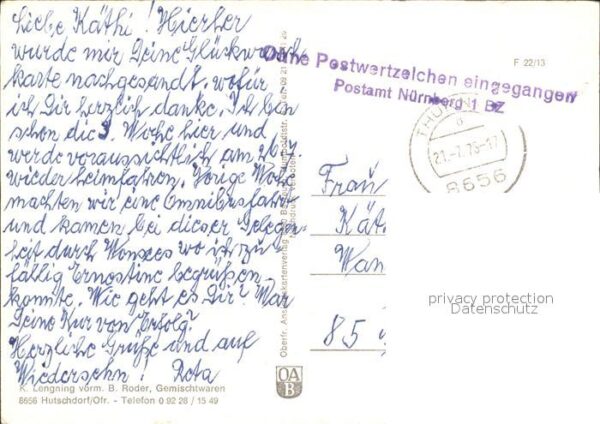 Liebe Käthi! Hierher
wurde mir Deine Glückwunsch
karte nachgesandt, wofür
ich Dir herzlich danke. Ich bin
schon die 3. Woche hier und
werde voraussichtlich am 26.7.
wieder heimfahren. Vorige Woche
machten wir eine Omnibusfahrt
und kamen bei dieser Gelegen
heit durch Wonsees wo ich zu
fällig Ernestine begrüßen
konnte. Wie geht es Dir? War
Deine Kur von Erfolg?
Herzliche Grüße und auf
Wiedersehn!
K. Lengning vorm. B. Roder, Gemischtwaren
8656 Hutschdorf/Ofr. - Telefon 0 92 28 / 15 49
Oberfr. Ansichtskartenverlag
OA
B
F 22/13
Ohne Postwertzeichen eingegangen
Postamt Nürnberg 1 BZ
THURN
21.-7.76-17
8656
Frau
Kät
Wan
85
privacy protection
Datenschutz